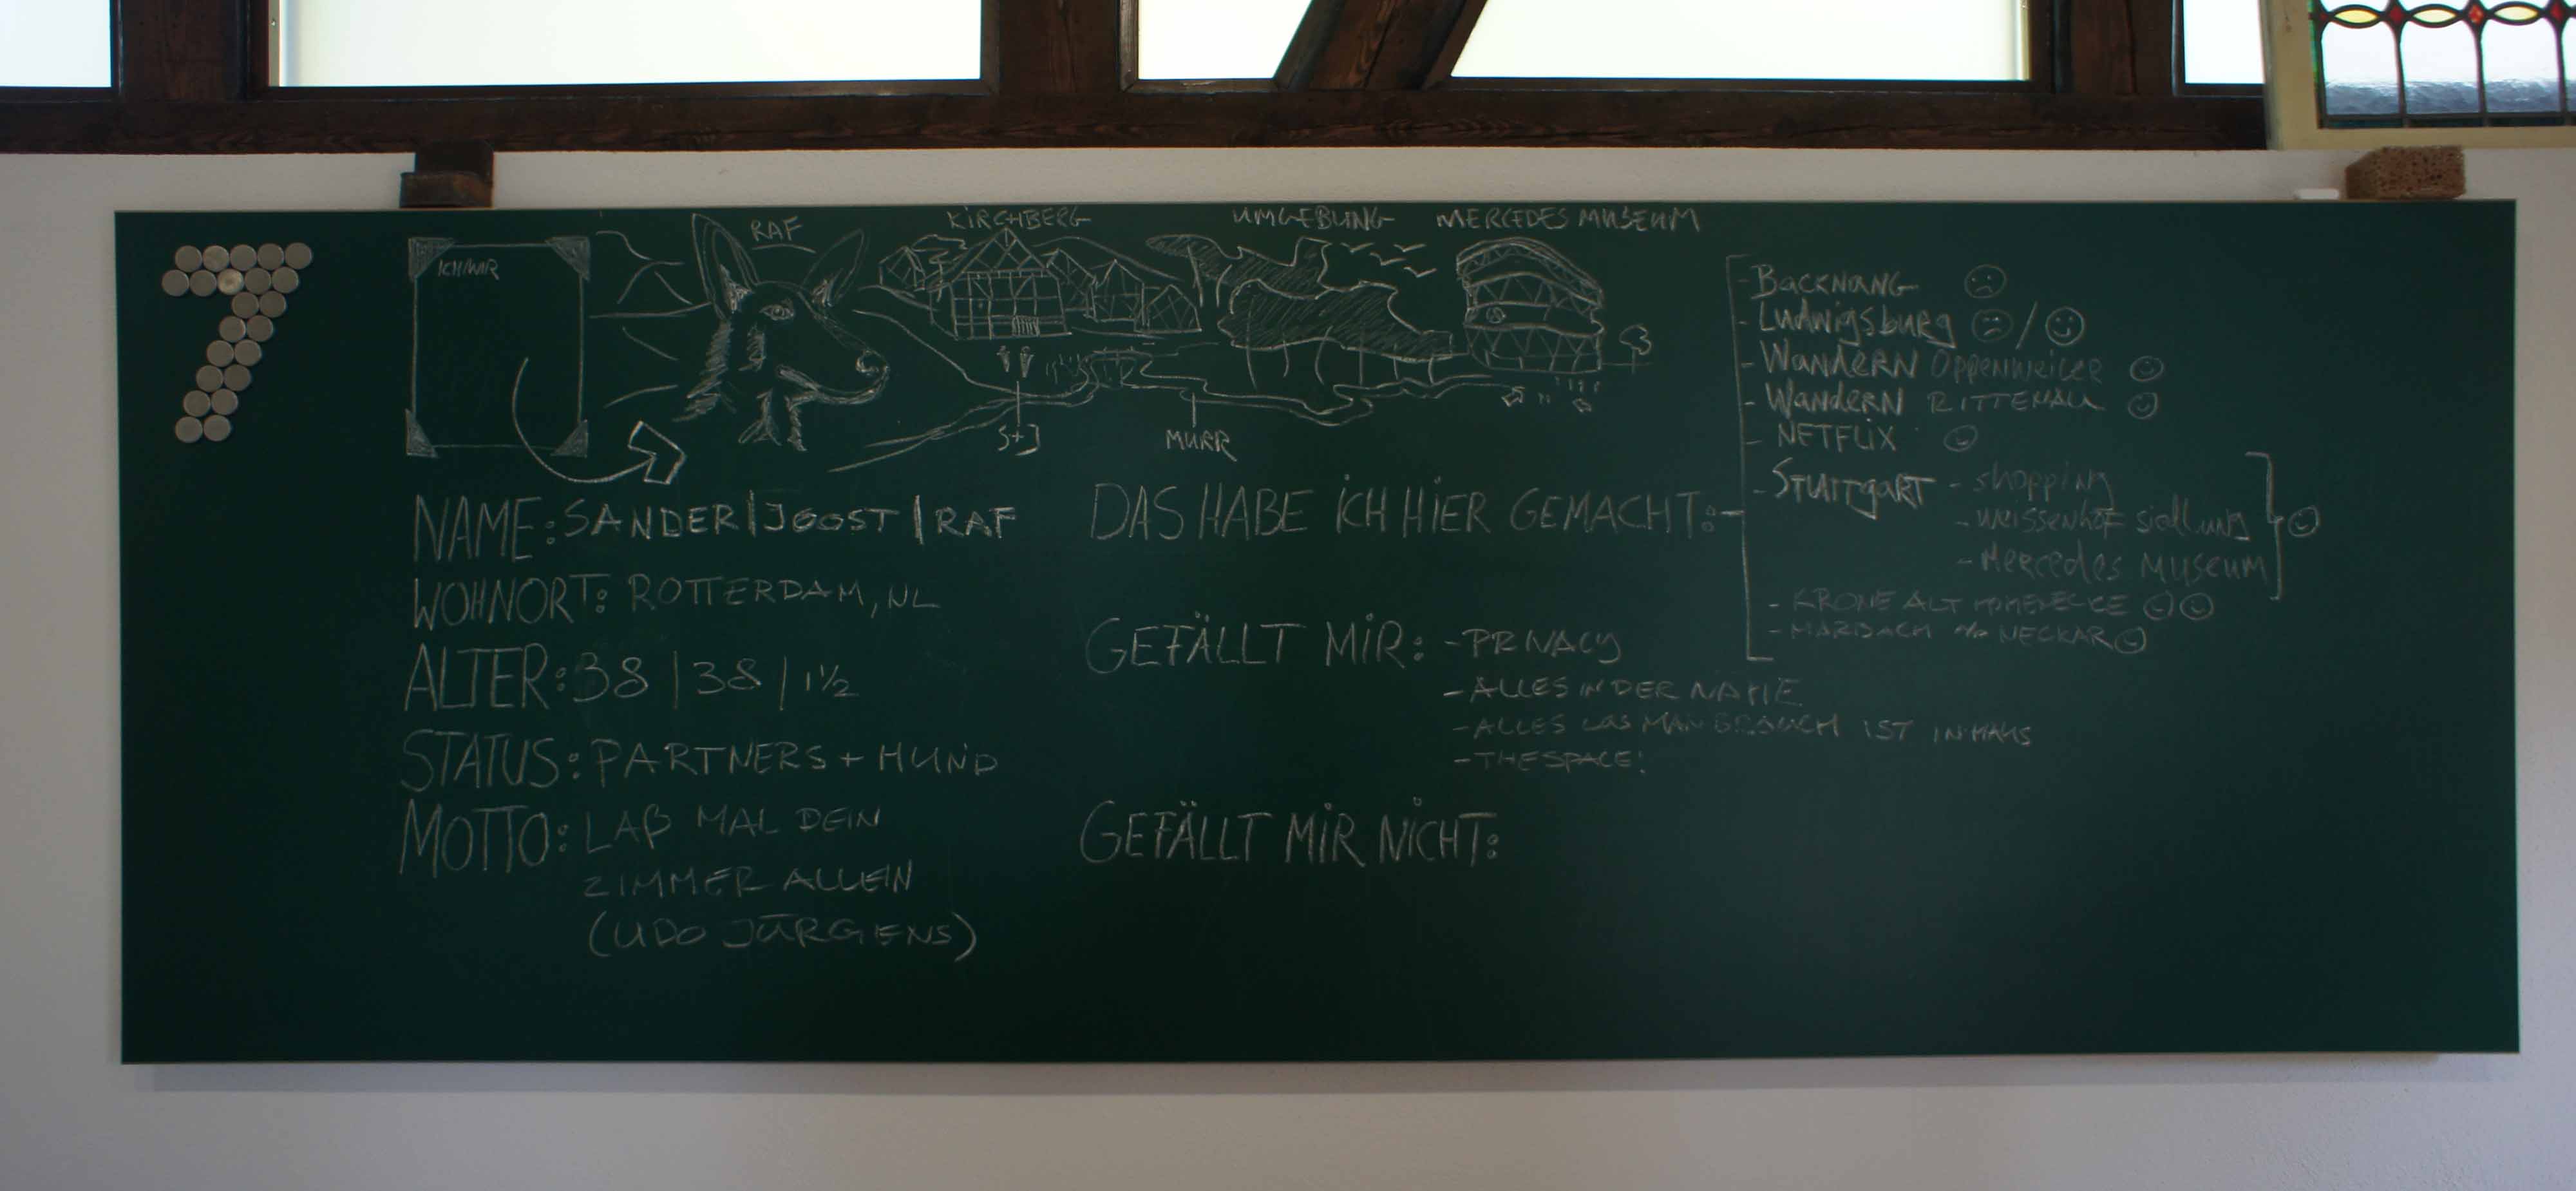 7
ICH/WIR
RAF
KIRCHBERG
UMGEBUNG
MERCEDES MUSEUM
S+J
MURR
NAME: SANDER | JOOST | RAF
WOHNORT: ROTTERDAM, NL
ALTER: 38 | 38 | 1½
STATUS: PARTNERS + HUND
MOTTO: LAß MAL DEIN
ZIMMER ALLEIN
(UDO JÜRGENS)
DAS HABE ICH HIER GEMACHT:
- BACKNANG
- Ludwigsburg /
- WANDERN Oppenweiler
- WANDERN RITTENAU
- NETFLIX
- STUTTGART - shopping
- weissenhof siedlung
- Mercedes Museum
- KRONE ALT
- MARBACH a/o NECKAR
GEFÄLLT MIR: - PRIVACY
- ALLES IN DER NÄHE
- ALLES WAS MAN BRAUCH IST IN HAUS
- THE SPACE!
GEFÄLLT MIR NICHT: